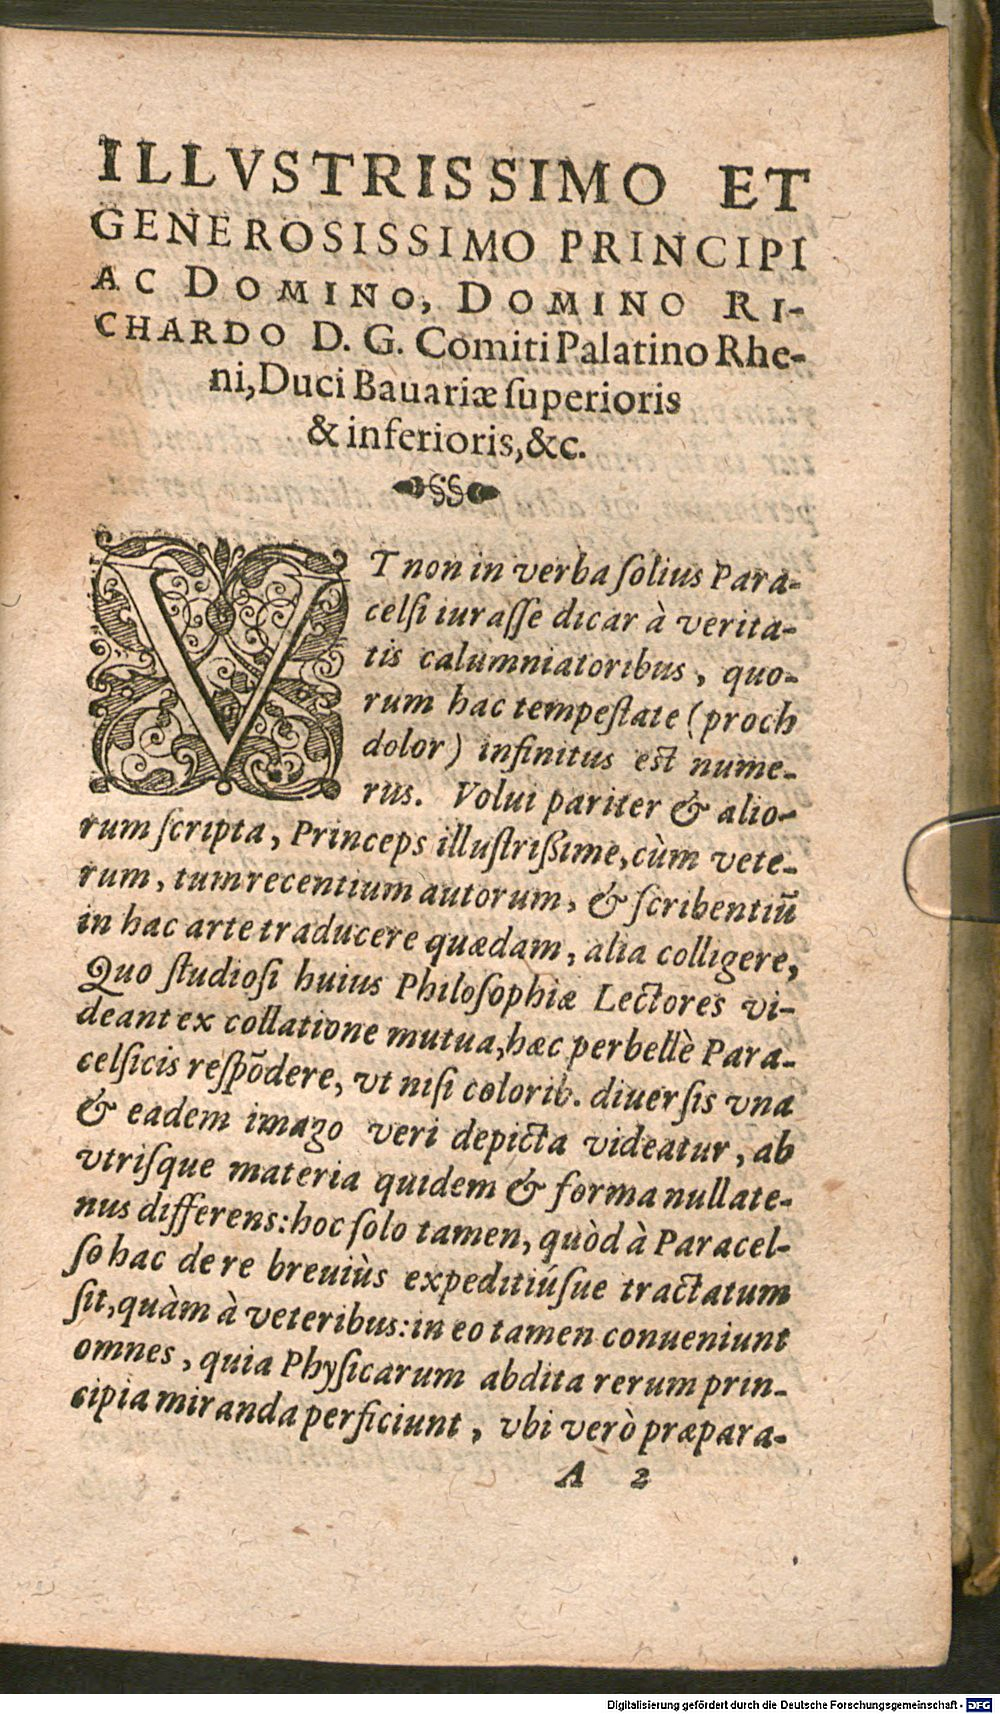 ILLVSTRISSIMO ET
GENEROSISSIMO PRINCIPI
AC DOMINO, DOMINO RI-
CHARDO D. G. Comiti Palatino Rhe-
ni, Duci Bauariæ ſuperioris
& inferioris, &c.
VT non in verba ſolius Para-
celſi iuraſſe dicar à verita-
tis calumniatoribus, quo-
rum hac tempeſtate (proch
dolor) infinitus est nume-
rus. Volui pariter & alio-
rum ſcripta, Princeps illuſtriſsime, cùm vete-
rum, tum recentium autorum, & ſcribentiũ
in hac arte traducere quædam, alia colligere,
Quo ſtudioſi huius Philoſophiæ Lectores vi-
deant ex collatione mutua, hæc perbellè Para-
celſicis reſpõdere, vt niſi colorib. diuerſis vna
& eadem imago veri depicta videatur, ab
vtriſque materia quidem & forma nullate-
nus differens: hoc ſolo tamen, quòd à Paracel-
ſo hac de re breuiùs expeditiúſue tractatum
ſit, quàm à veteribus: in eo tamen conueniunt
omnes, quia Phyſicarum abdita rerum prin-
cipia miranda perficiunt, vbi verò præpara-
A 2
Digitalisierung gefördert durch die Deutsche Forschungsgemeinschaft - DFG